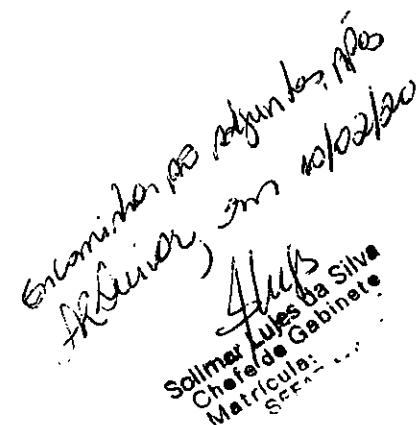 Encaminhar ao Adjuntos, após
Arquivar, em 10/02/20
Solimar Lujes da Silva
Chefe de Gabinete
Matrícula: